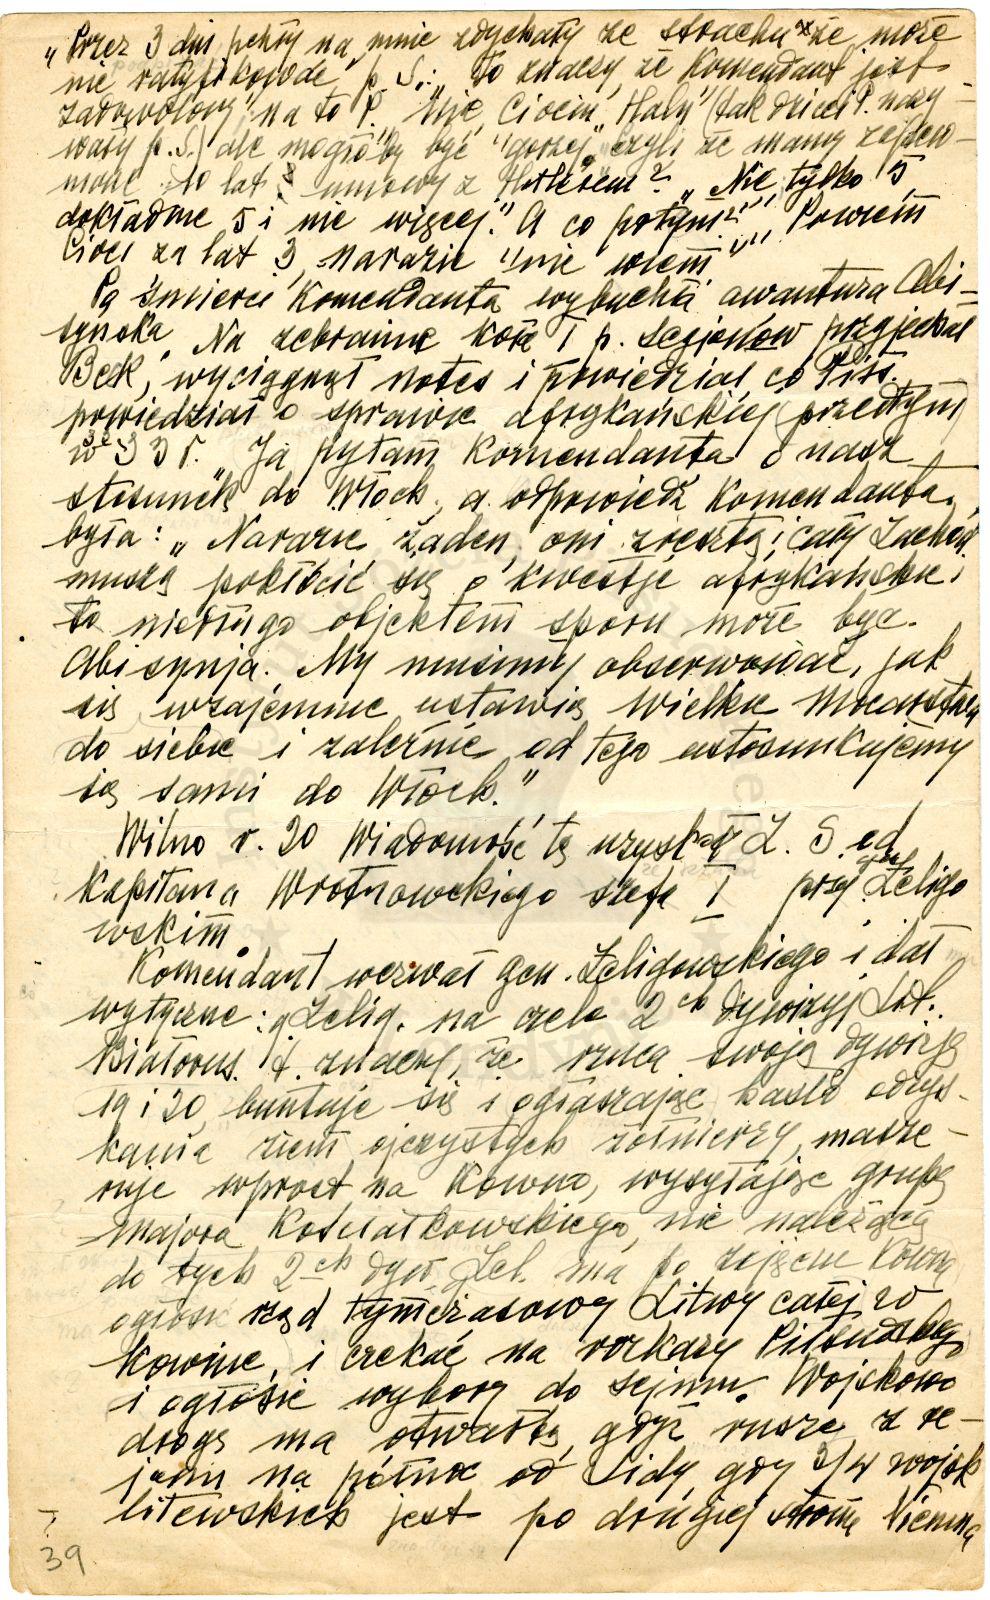 „Przez 3 dni pchły na mnie zdychały ze strachu że może
nie ratyfikować" p. S.: "To znaczy, że Komendant jest
zadowolony", na to P. "Nie, Ciociu Halu" (tak dzieci P. nazy-
wały p. S.) ale mogło by być "gorzej" "czyli że mamy zapew-
nione 10 lat umowy z Hitlerem?" „Nie, tylko 5,
dokładnie 5 i nie więcej." A co potym?" „Powiem
Cioci za lat 3, narazie "nie wiem"."
Po śmierci Komendanta wybuchła awantura Abi-
syńska. Na zebranie koła I p. Legjonów przyjechał
Beck, wyciągnął notes i powiedział co Piłs.
powiedział o sprawie afrykańskiej (przedtym)
w 33 r. „Ja pytam Komendanta o nasz
stosunek do Włoch, a odpowiedź Komendanta
była: „Narazie żaden, oni zresztą i cały Zachód
muszą pokłócić się o kwestję afrykańską i
to niedługo objektem sporu może być
Abisynja. My musimy obserwować, jak
się wzajemnie ustawią Wielkie Mocarstwa
do siebie i zależnie od tego ustosunkujemy
się sami do Włoch."
Wilno r. 20 Wiadomość tę uzyskał L. S. od
Kapitana Wrotnowskiego szefa I przy gen. Żeligo
wskim.
Komendant wezwał gen. Żeligowskiego i dał
wytyczne: g. Żelig. na czele 2ch dywizyj Lit.
Białorus. t. znaczy, że rzuca swoją dywizję
19 i 20, buntuje się i ogłaszając hasło odzys-
kania ziem ojczystych żołnierzy, masze-
ruje wprost na Kowno, wysyłając grupę
majora Kościałkowskiego, nie należącą
do tych 2ch dyw. Żel. ma po zajęciu Kowna
ogłosić rząd tymczasowy Litwy całej w
Kownie, i czekać na rozkazy Piłsudskiego
i ogłosić wybory do sejmu. Wojskowo
drogę ma otwartą, gdyż rusza z re-
jonu na północ od Lidy, gdy 3/4 wojsk
litewskich jest po drugiej stronie Niemna
39